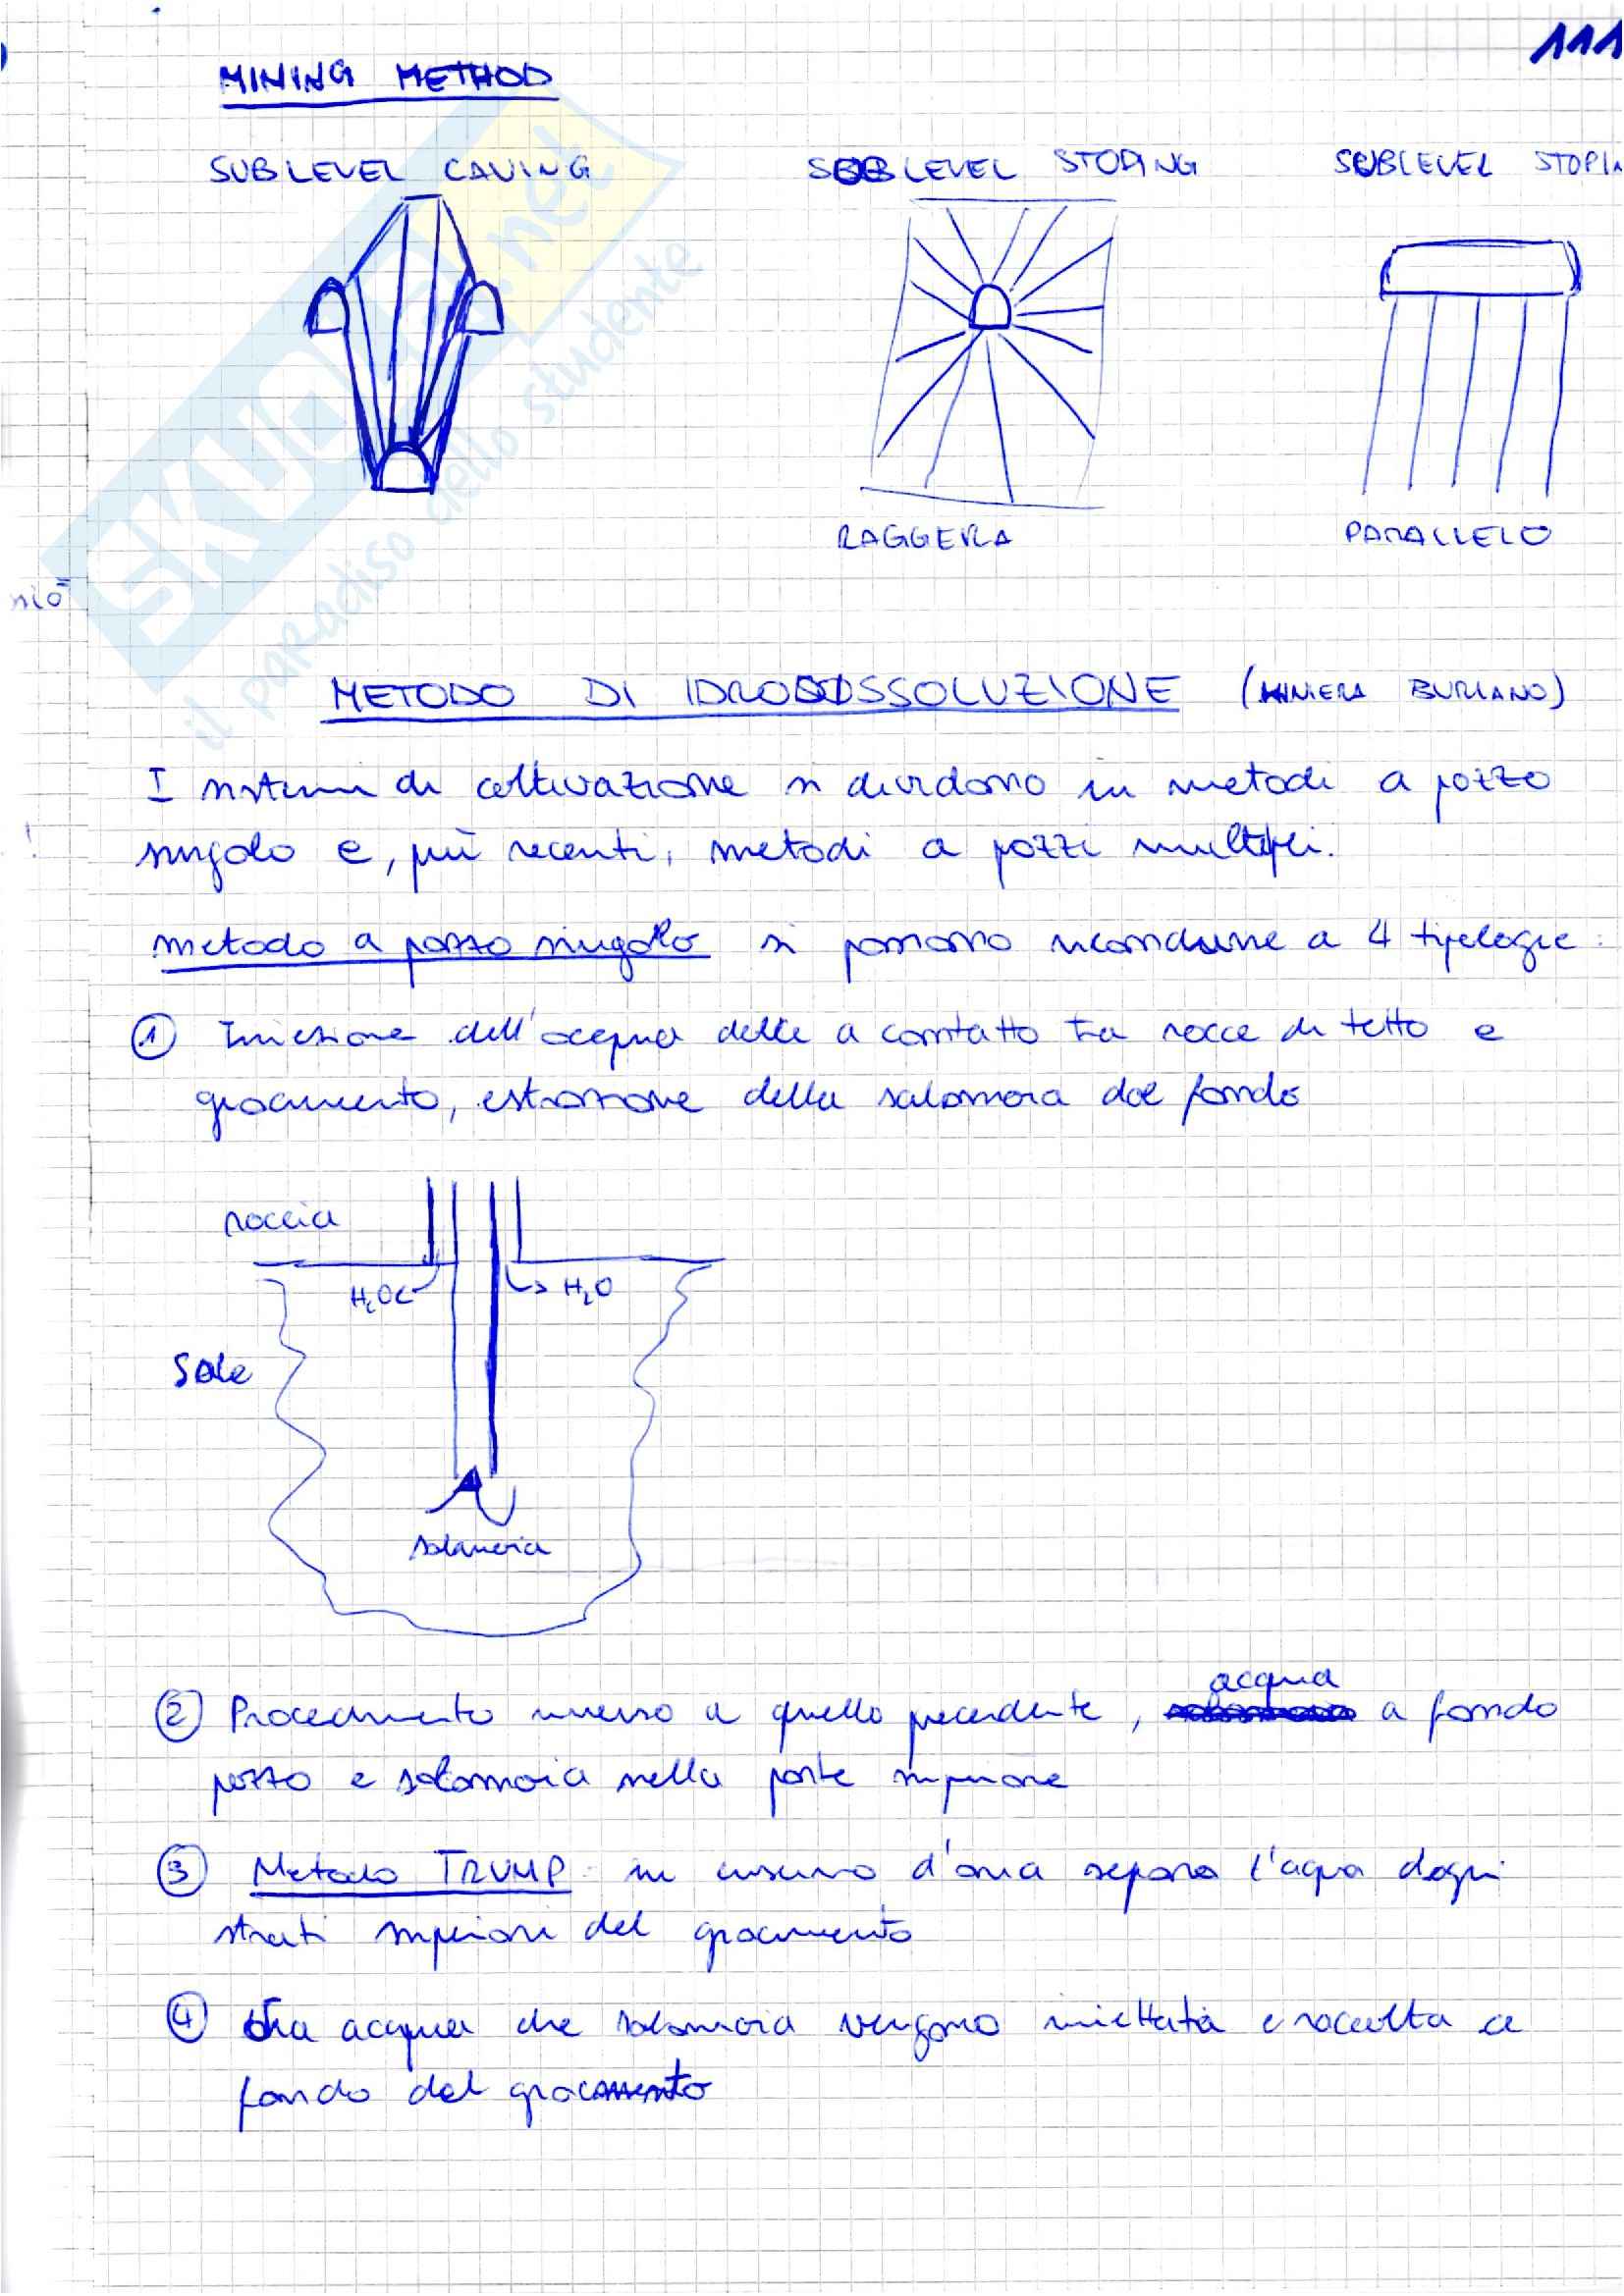 111
MINING METHOD
SUBLEVEL CAVING
SUBLEVEL STOPING
SUBLEVEL STOPIN
RAGGERA
PARALLELO
nio"
SKUOLA.net
il paradiso dello studente
METODO DI IDRODISSOLUZIONE (MINIERA BURIANO)
I sistemi di coltivazione si dividono in metodi a pozzo
singolo e, più recenti, metodi a pozzi multipli.
metodo a pozzo singolo si possono ricondurre a 4 tipologie:
① Iniezione dell'acqua della a contatto tra rocce di tetto e
giacimento, estrazione della salamoia dal fondo
roccia
H₂O
H₂O
Sale
salamoia
acqua
② Procedimento inverso a quello precedente, a fondo
pozzo e salamoia nella parte superiore
③ Metodo TRUMP: un cuscino d'aria separa l'aqua dagli
strati superiori del giacimento
④ Sia acqua che salamoia vengono iniettata e raccolta a
fondo del giacimento